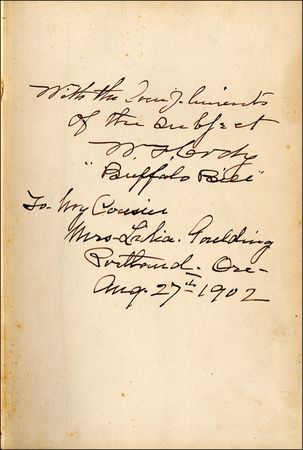 With the Compliments
of the subject
W. F. Cody
"Buffalo Bill"
To my Cousin
Mrs. Lidia. Goulding
Portland. Ore-
Aug. 27th 1902